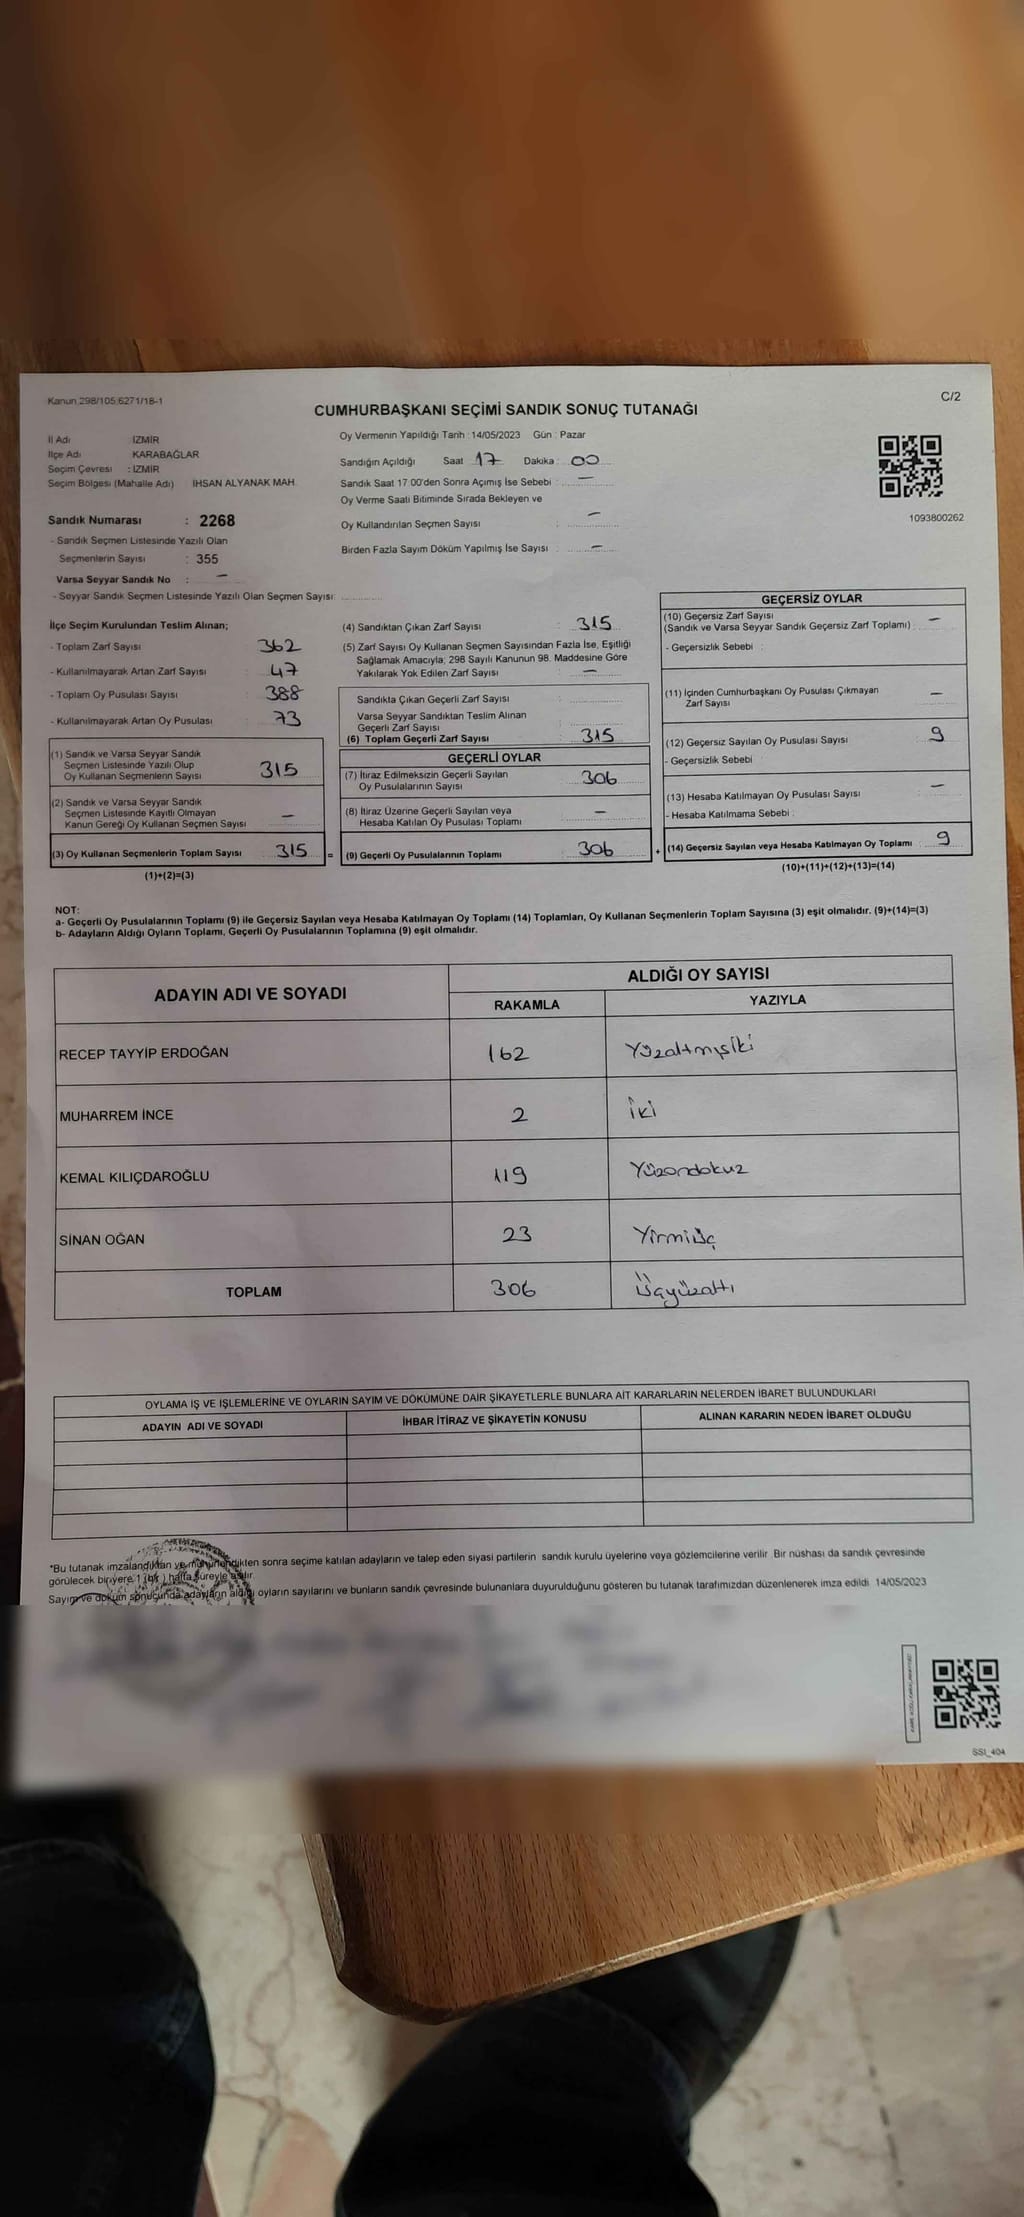 Kanun 298/105,6271/18-1
C/2
CUMHURBAŞKANI SEÇİMİ SANDIK SONUÇ TUTANAĞI
İl Adı İZMİR
İlçe Adı KARABAĞLAR
Seçim Çevresi : İZMİR
Seçim Bölgesi (Mahalle Adı) İHSAN ALYANAK MAH.
Oy Vermenin Yapıldığı Tarih : 14/05/2023 Gün : Pazar
Sandığın Açıldığı Saat 17 Dakika : 00
Sandık Saat 17 00'den Sonra Açımış İse Sebebi : —
Oy Verme Saati Bitiminde Sırada Bekleyen ve
Oy Kullandırılan Seçmen Sayısı : —
Birden Fazla Sayım Döküm Yapılmış İse Sayısı : —
1093800262
Sandık Numarası : 2268
- Sandık Seçmen Listesinde Yazılı Olan
Seçmenlerin Sayısı : 355
Varsa Seyyar Sandık No : —
- Seyyar Sandık Seçmen Listesinde Yazılı Olan Seçmen Sayısı:
İlçe Seçim Kurulundan Teslim Alınan;
- Toplam Zarf Sayısı 362
- Kullanılmayarak Artan Zarf Sayısı : 47
- Toplam Oy Pusulası Sayısı : 388
- Kullanılmayarak Artan Oy Pusulası : 73
(1) Sandık ve Varsa Seyyar Sandık
Seçmen Listesinde Yazılı Olup
Oy Kullanan Seçmenlerin Sayısı : 315
(2) Sandık ve Varsa Seyyar Sandık
Seçmen Listesinde Kayıtlı Olmayan
Kanun Gereği Oy Kullanan Seçmen Sayısı : —
(3) Oy Kullanan Seçmenlerin Toplam Sayısı : 315 =
(1)+(2)=(3)
(4) Sandıktan Çıkan Zarf Sayısı : 315
(5) Zarf Sayısı Oy Kullanan Seçmen Sayısından Fazla İse, Eşitliği
Sağlamak Amacıyla; 298 Sayılı Kanunun 98. Maddesine Göre
Yakılarak Yok Edilen Zarf Sayısı : —
Sandıkta Çıkan Geçerli Zarf Sayısı :
Varsa Seyyar Sandıktan Teslim Alınan
Geçerli Zarf Sayısı :
(6) Toplam Geçerli Zarf Sayısı : 315
GEÇERLİ OYLAR
(7) İtiraz Edilmeksizin Geçerli Sayılan
Oy Pusulalarının Sayısı : 306
(8) İtiraz Üzerine Geçerli Sayılan veya
Hesaba Katılan Oy Pusulası Toplamı : —
(9) Geçerli Oy Pusulalarının Toplamı : 306 +
GEÇERSİZ OYLAR
(10) Geçersiz Zarf Sayısı
(Sandık ve Varsa Seyyar Sandık Geçersiz Zarf Toplamı) : —
- Geçersizlik Sebebi :
(11) İçinden Cumhurbaşkanı Oy Pusulası Çıkmayan
Zarf Sayısı : —
(12) Geçersiz Sayılan Oy Pusulası Sayısı : 9
- Geçersizlik Sebebi :
(13) Hesaba Katılmayan Oy Pusulası Sayısı : —
- Hesaba Katılmama Sebebi :
(14) Geçersiz Sayılan veya Hesaba Katılmayan Oy Toplamı : 9
(10)+(11)+(12)+(13)=(14)
NOT:
a- Geçerli Oy Pusulalarının Toplamı (9) ile Geçersiz Sayılan veya Hesaba Katılmayan Oy Toplamı (14) Toplamları, Oy Kullanan Seçmenlerin Toplam Sayısına (3) eşit olmalıdır. (9)+(14)=(3)
b- Adayların Aldığı Oyların Toplamı, Geçerli Oy Pusulalarının Toplamına (9) eşit olmalıdır.
ADAYIN ADI VE SOYADI ALDIĞI OY SAYISI
RAKAMLA YAZIYLA
RECEP TAYYİP ERDOĞAN 162 Yüzaltmışiki
MUHARREM İNCE 2 İki
KEMAL KILIÇDAROĞLU 119 Yüzondokuz
SİNAN OĞAN 23 Yirmiüç
TOPLAM 306 Üçyüzaltı
OYLAMA İŞ VE İŞLEMLERİNE VE OYLARIN SAYIM VE DÖKÜMÜNE DAİR ŞİKAYETLERLE BUNLARA AİT KARARLARIN NELERDEN İBARET BULUNDUKLARI
ADAYIN ADI VE SOYADI İHBAR İTİRAZ VE ŞİKAYETİN KONUSU ALINAN KARARIN NEDEN İBARET OLDUĞU
*Bu tutanak imzalandıktan ve mühürlendikten sonra seçime katılan adayların ve talep eden siyasi partilerin sandık kurulu üyelerine veya gözlemcilerine verilir. Bir nüshası da sandık çevresinde
görülecek bir yere 1 (bir) hafta süreyle asılır.
Sayım ve döküm sonucunda adayların aldığı oyların sayılarını ve bunların sandık çevresinde bulunanlara duyurulduğunu gösteren bu tutanak tarafımızdan düzenlenerek imza edildi 14/05/2023
SSI_404